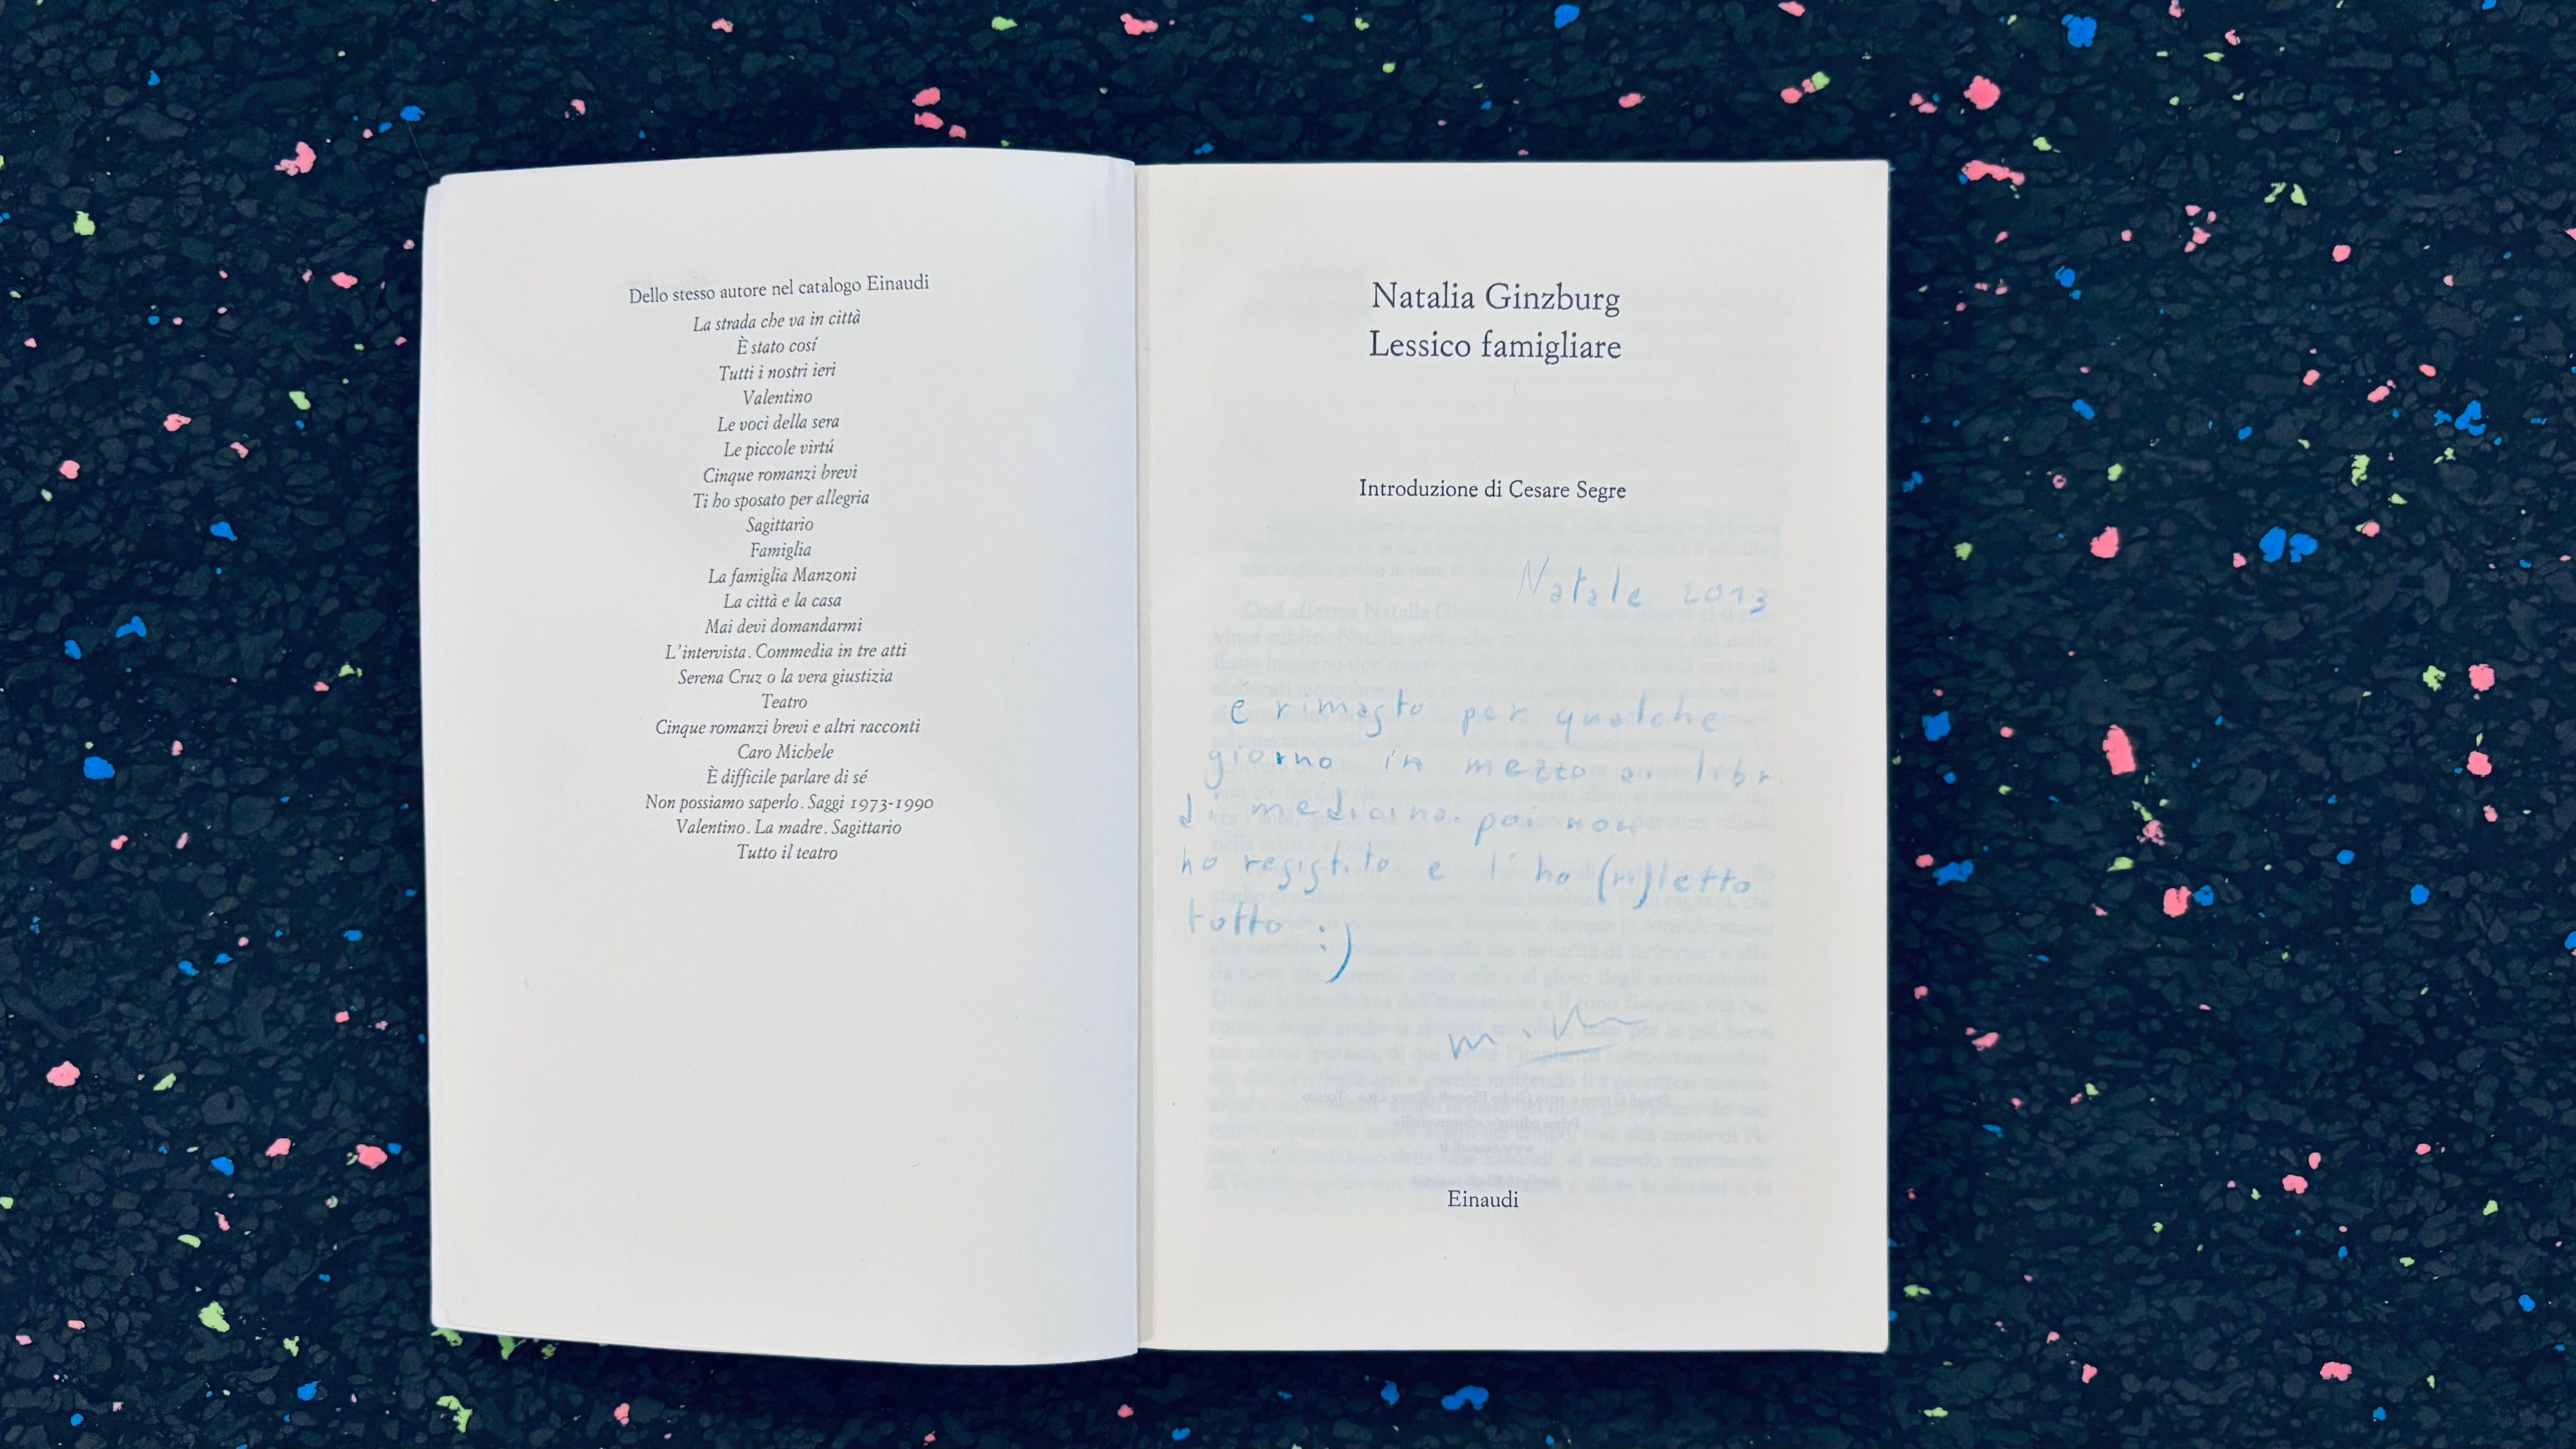 Dello stesso autore nel catalogo Einaudi
La strada che va in città
È stato cosí
Tutti i nostri ieri
Valentino
Le voci della sera
Le piccole virtú
Cinque romanzi brevi
Ti ho sposato per allegria
Sagittario
Famiglia
La famiglia Manzoni
La città e la casa
Mai devi domandarmi
L'intervista. Commedia in tre atti
Serena Cruz o la vera giustizia
Teatro
Cinque romanzi brevi e altri racconti
Caro Michele
È difficile parlare di sé
Non possiamo saperlo. Saggi 1973-1990
Valentino. La madre. Sagittario
Tutto il teatro
Natalia Ginzburg
Lessico famigliare
Introduzione di Cesare Segre
Natale 2013
é rimasto per qualche
giorno in mezzo ai libri
di medicina. poi non
ho resistito e l'ho (ri)letto
tutto :)
Einaudi